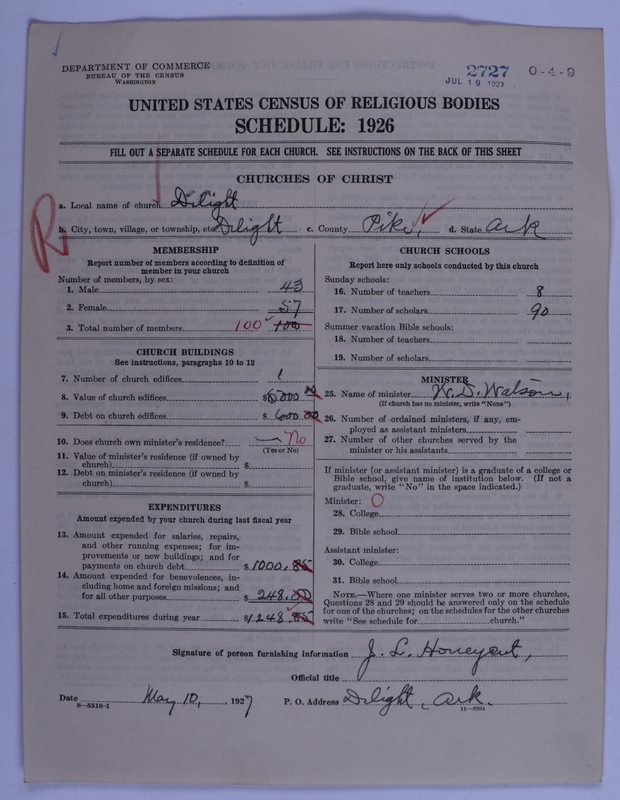 DEPARTMENT OF COMMERCE
BUREAU OF THE CENSUS
WASHINGTON
2727
JUL 19 1927
0-4-9
UNITED STATES CENSUS OF RELIGIOUS BODIES
SCHEDULE: 1926
FILL OUT A SEPARATE SCHEDULE FOR EACH CHURCH. SEE INSTRUCTIONS ON THE BACK OF THIS SHEET
CHURCHES OF CHRIST
a. Local name of church Delight
R
b. City, town, village, or township, etc. Delight c. County Pike, d. State Ark
MEMBERSHIP
Report number of members according to definition of
member in your church
Number of members, by sex:
1. Male 43
2. Female 57
3. Total number of members 100 100
CHURCH BUILDINGS
See instructions, paragraphs 10 to 12
7. Number of church edifices 1
8. Value of church edifices $5000 00
9. Debt on church edifices $ 600 00
10. Does church own minister's residence? — No
(Yes or No)
11. Value of minister's residence (if owned by
church) $
12. Debt on minister's residence (if owned by
church) $
EXPENDITURES
Amount expended by your church during last fiscal year
13. Amount expended for salaries, repairs,
and other running expenses; for im-
provements or new buildings; and for
payments on church debt $ 1000.85
14. Amount expended for benevolences, in-
cluding home and foreign missions; and
for all other purposes $ 248.00
15. Total expenditures during year $1248.85
CHURCH SCHOOLS
Report here only schools conducted by this church
Sunday schools:
16. Number of teachers 8
17. Number of scholars 90
Summer vacation Bible schools:
18. Number of teachers
19. Number of scholars
MINISTER
25. Name of minister W. D. Watson,
(If church has no minister, write "None")
26. Number of ordained ministers, if any, em-
ployed as assistant ministers
27. Number of other churches served by the
minister or his assistants
If minister (or assistant minister) is a graduate of a college or
Bible school, give name of institution below. (If not a
graduate, write "No" in the space indicated.)
Minister: O
28. College
29. Bible school
Assistant minister:
30. College
31. Bible school
NOTE.—Where one minister serves two or more churches,
Questions 28 and 29 should be answered only on the schedule
for one of the churches; on the schedules for the other churches
write "See schedule for church."
Signature of person furnishing information J. L. Honeycut,
Official title
Date May 10, , 1927 P. O. Address Delight, Ark.
8—5318-1 11—9204